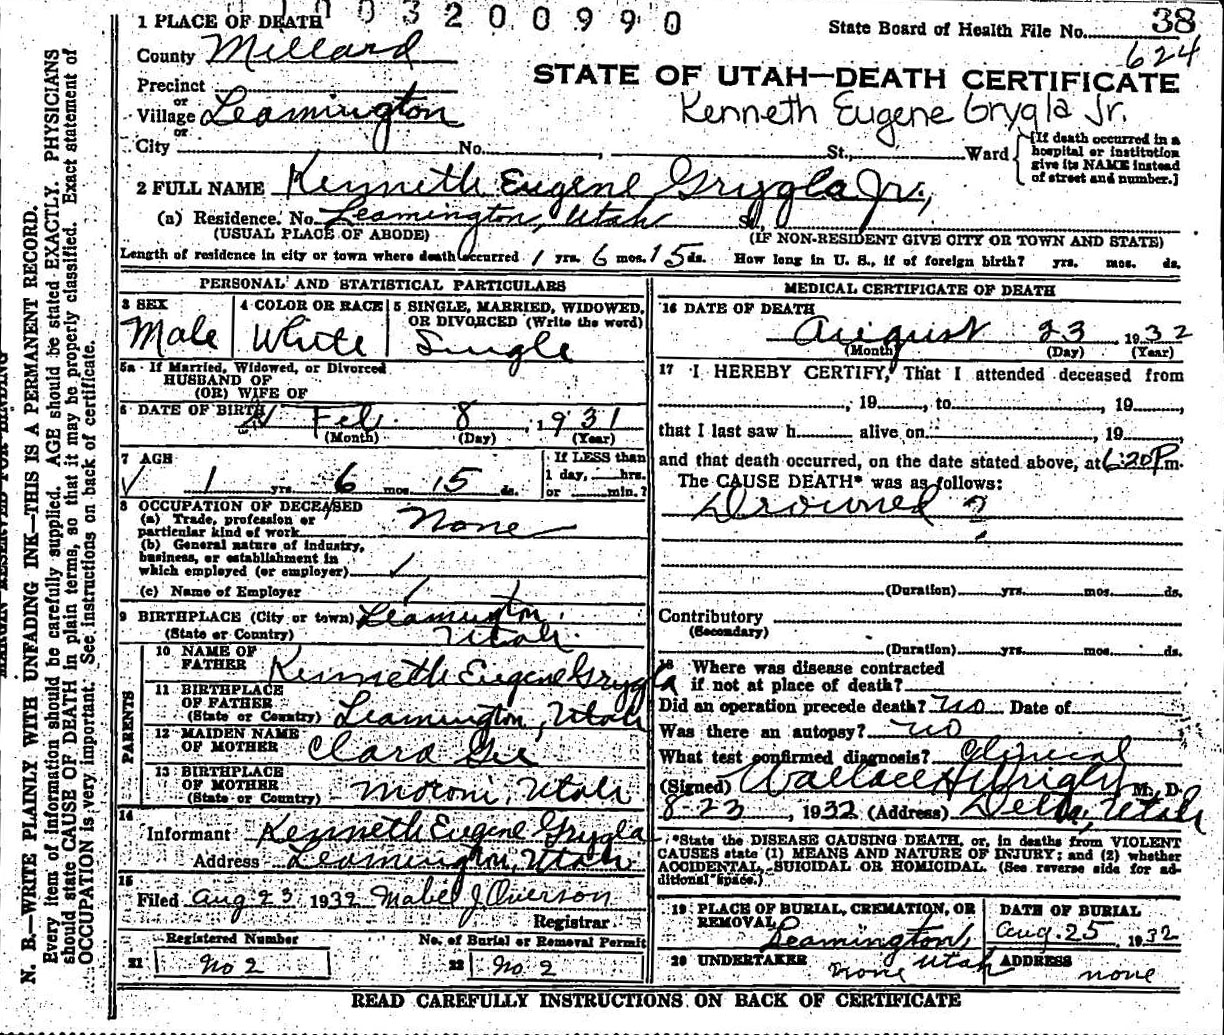 0 1 0 0 3 2 0 0 9 9 0
1 PLACE OF DEATH
State Board of Health File No. 38
County Millard
624
STATE OF UTAH—DEATH CERTIFICATE
Precinct
or
Village Leamington
Kenneth Eugene Grygla Jr.
or
City No. St., Ward
[If death occurred in a hospital or institution give its NAME instead of street and number.]
2 FULL NAME Kenneth Eugene Grygla Jr.,
(a) Residence. No. Leamington, Utah St.,
(USUAL PLACE OF ABODE) (IF NON-RESIDENT GIVE CITY OR TOWN AND STATE)
Length of residence in city or town where death occurred 1 yrs. 6 mos. 15 ds. How long in U. S., if of foreign birth? yrs. mos. ds.
PERSONAL AND STATISTICAL PARTICULARS
3 SEX
Male
4 COLOR OR RACE
White
5 SINGLE, MARRIED, WIDOWED,
OR DIVORCED (Write the word)
Single
5a If Married, Widowed, or Divorced
HUSBAND OF
(OR) WIFE OF
6 DATE OF BIRTH Feb. 8, 1931
(Month) (Day) (Year)
7 AGE
1 yrs. 6 mos. 15 ds.
If LESS than
1 day, hrs.
or min.?
8 OCCUPATION OF DECEASED
(a) Trade, profession or
particular kind of work None
(b) General nature of industry,
business, or establishment in
which employed (or employer)
(c) Name of Employer
9 BIRTHPLACE (City or town) Leamington
(State or Country) Utah.
PARENTS
10 NAME OF
FATHER Kenneth Eugene Grygla
11 BIRTHPLACE
OF FATHER
(State or Country) Leamington, Utah
12 MAIDEN NAME
OF MOTHER Clara
13 BIRTHPLACE
OF MOTHER
(State or Country) Moroni, Utah
14
Informant Kenneth Eugene Grygla
Address Leamington, Utah
15
Filed Aug 23, 1932 Mabel J Overson
Registrar
Registered Number No. of Burial or Removal Permit
21 No 2 22 No 2
MEDICAL CERTIFICATE OF DEATH
16 DATE OF DEATH
August 23 1932
(Month) (Day) (Year)
17 I HEREBY CERTIFY, That I attended deceased from
, 19 , to , 19 ,
that I last saw h alive on , 19 ,
and that death occurred, on the date stated above, at 6:20 P.m.
The CAUSE DEATH* was as follows:
Drowned ?
(Duration) yrs. mos. ds.
Contributory
(Secondary)
(Duration) yrs. mos. ds.
18 Where was disease contracted
if not at place of death?
Did an operation precede death? no Date of
Was there an autopsy? no
What test confirmed diagnosis? Clinical
(Signed) Wallace M. D.
8-23, 1932 (Address) Delta, Utah
*State the DISEASE CAUSING DEATH, or, in deaths from VIOLENT
CAUSES state (1) MEANS AND NATURE OF INJURY; and (2) whether
ACCIDENTAL, SUICIDAL OR HOMICIDAL. (See reverse side for ad-
ditional space.)
19 PLACE OF BURIAL, CREMATION, OR
REMOVAL
Leamington,
Utah
DATE OF BURIAL
Aug. 25, 1932
20 UNDERTAKER none
ADDRESS none
READ CAREFULLY INSTRUCTIONS ON BACK OF CERTIFICATE
MARGIN RESERVED FOR BINDING
N. B.—WRITE PLAINLY WITH UNFADING INK—THIS IS A PERMANENT RECORD.
Every item of information should be carefully supplied. AGE should be stated EXACTLY. PHYSICIANS
should state CAUSE OF DEATH in plain terms, so that it may be properly classified. Exact statement of
OCCUPATION is very important. See instructions on back of certificate.